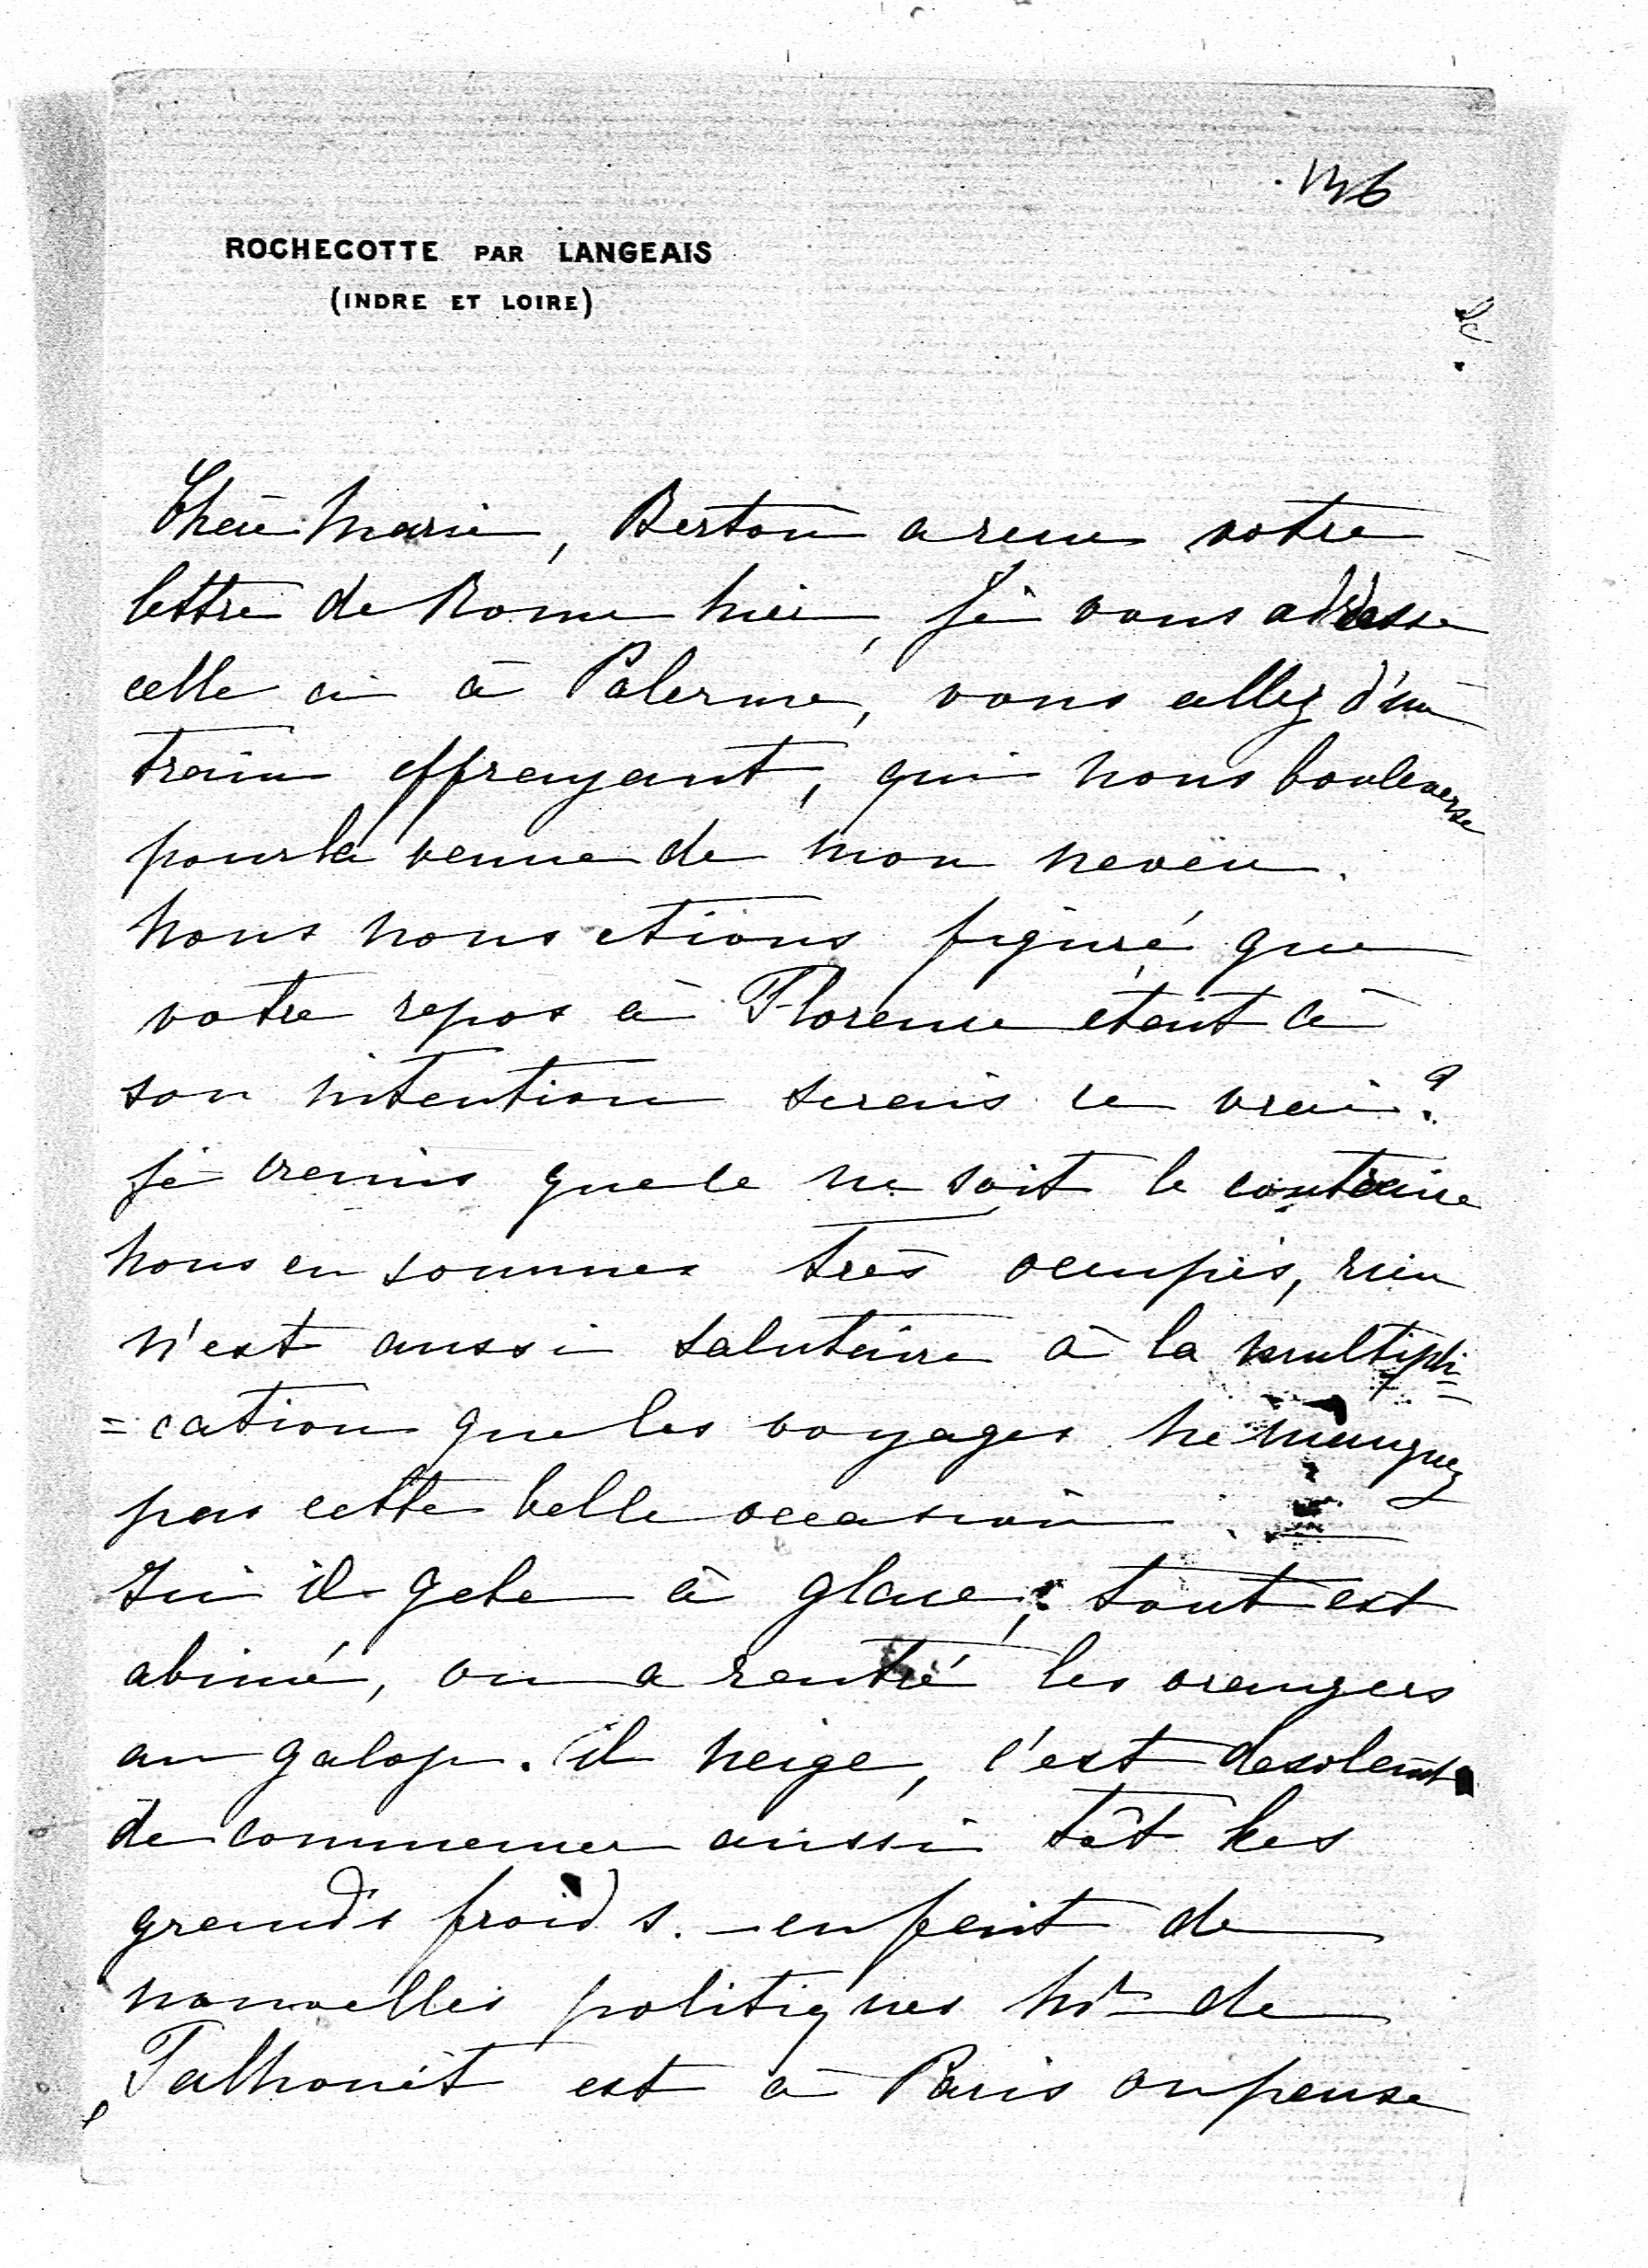 146
ROCHECOTTE PAR LANGEAIS
(INDRE ET LOIRE)
Chère Marie, Berton a recu votre
lettre de Rome hier, je vous adresse
celle ci à Palerme, vous allez d'un
train effrayant, qui nous bouleverse
pour la venue de mon neveu.
Nous nous etions figuré que
votre repos à Florence etait à
son intention serais ce vrai?
je crains que ce ne soit le contraire
nous en sommes très occupés, rien
n'est aussi salutaire à la multipli
=cation que les voyages ne manquez
pas cette belle occasion.
Ici il gele à glace, tout est
abimé, on a rentré les orangers
au galop. il neige, c'est desolant
de commencer aussi tôt les
grands froids. - en fait de
nouvelles politiques Mr de
Talhouët est à Paris on pense